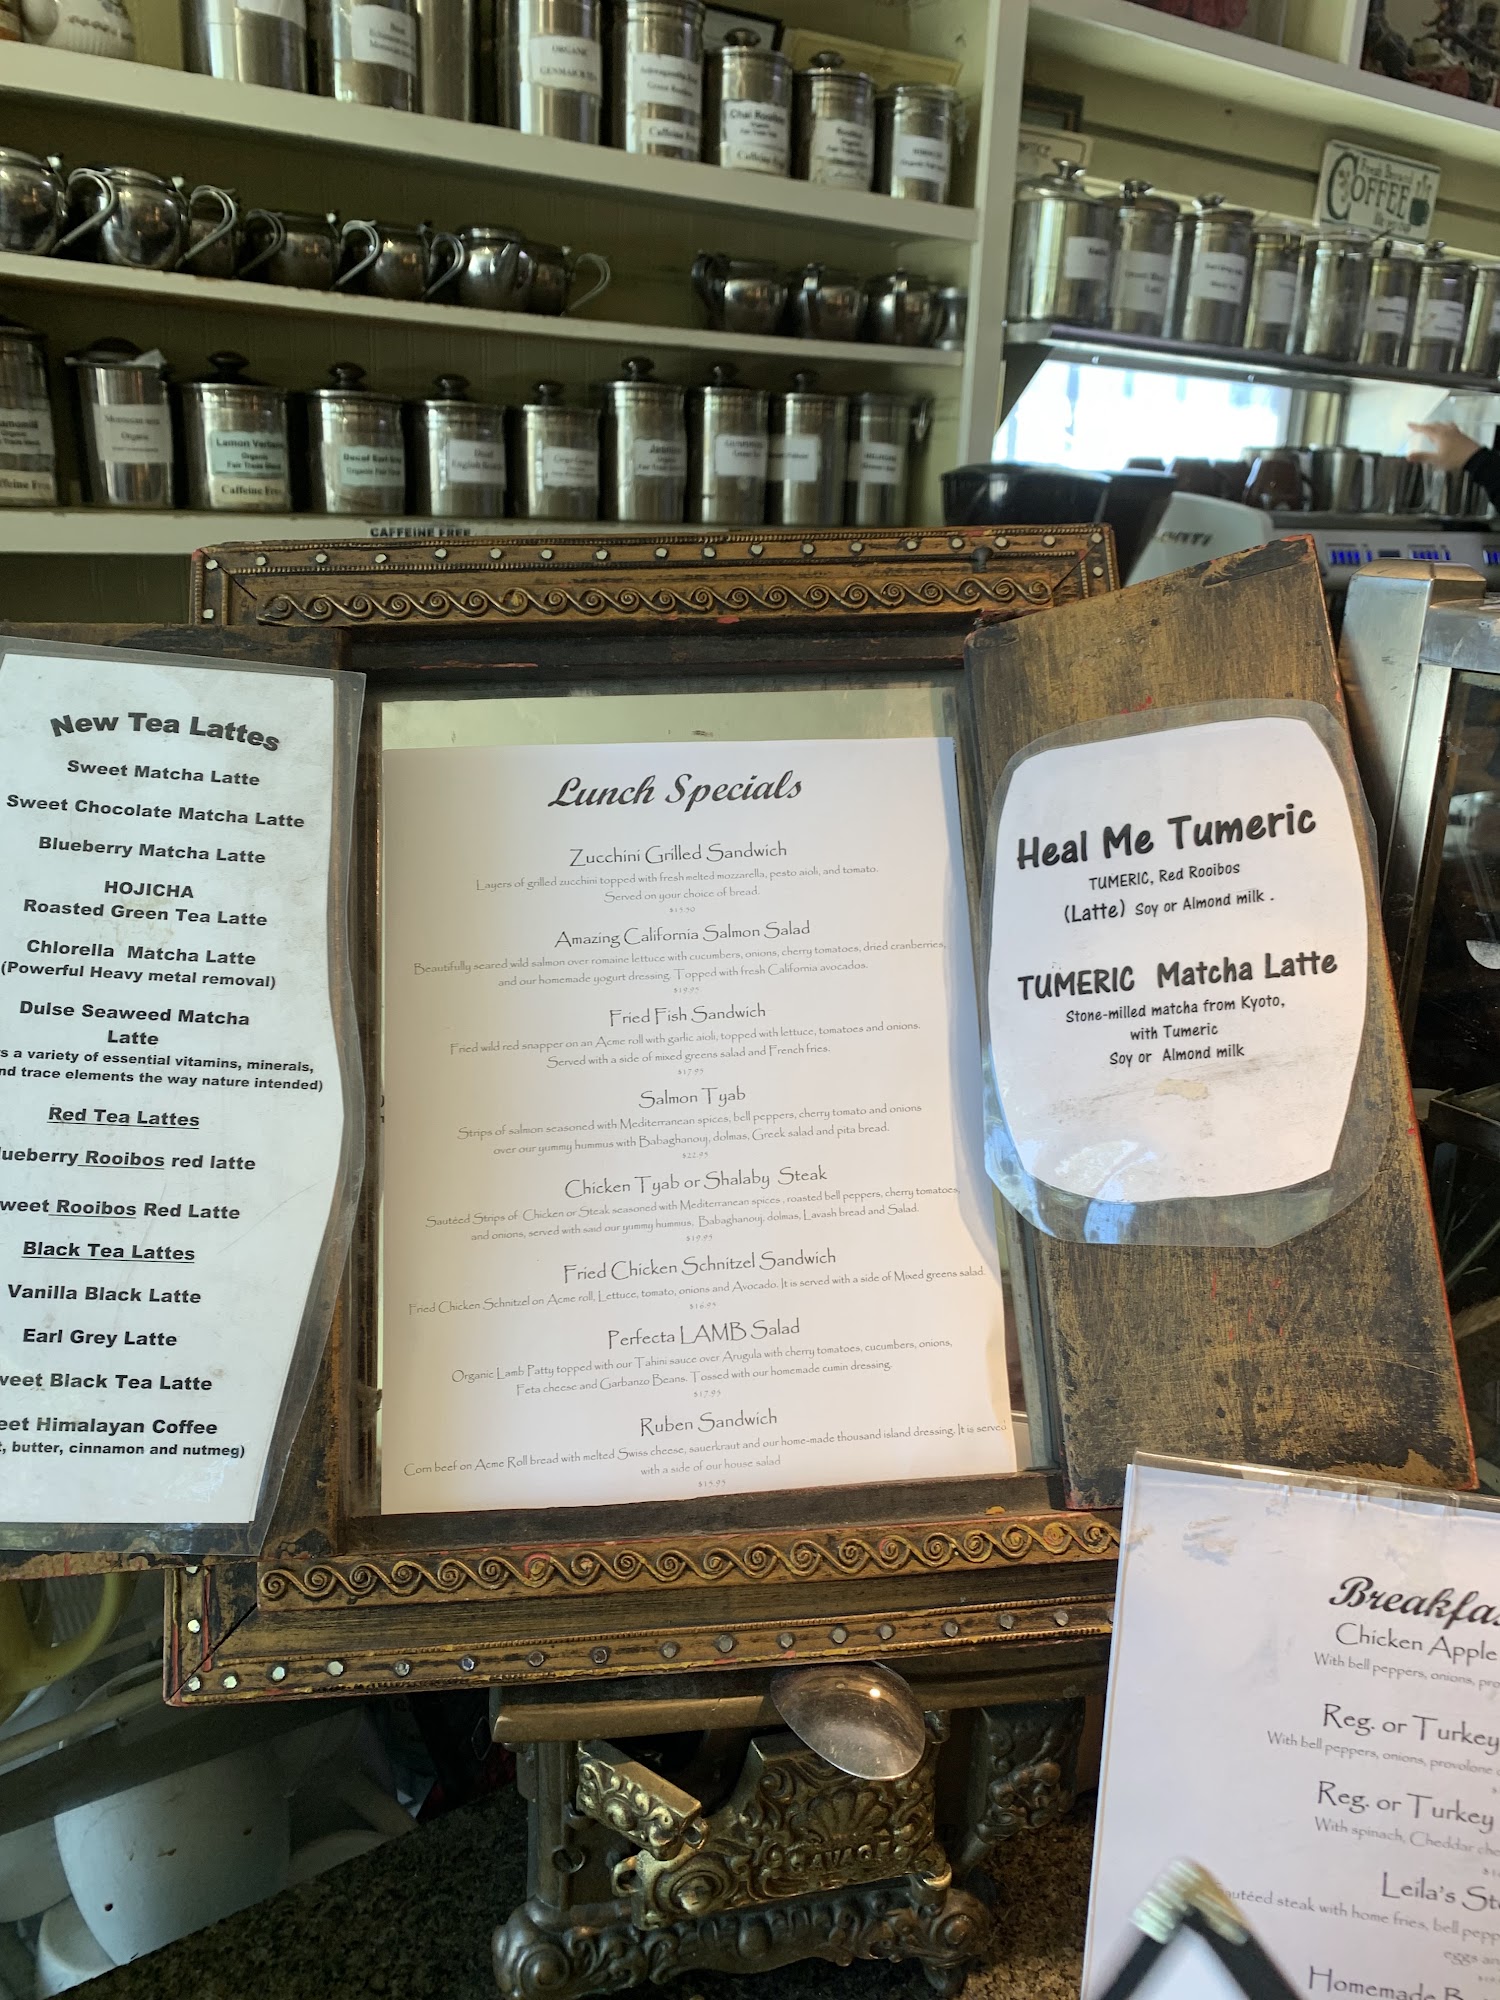 ORGANIC
GENMAICHA TEA
Caffeine Free
Chai Rooibos
Organic
Caffeine Free
Organic
Fresh Brewed
COFFEE
Organic
Lemon Verbena
Organic
Fair Trade
Caffeine Free
Decaf Earl Grey
Organic Fair Trade
Decaf
Jasmine
CAFFEINE FREE
New Tea Lattes
Sweet Matcha Latte
Sweet Chocolate Matcha Latte
Blueberry Matcha Latte
HOJICHA
Roasted Green Tea Latte
Chlorella Matcha Latte
(Powerful Heavy metal removal)
Dulse Seaweed Matcha
Latte
s a variety of essential vitamins, minerals,
nd trace elements the way nature intended)
Red Tea Lattes
ueberry Rooibos red latte
weet Rooibos Red Latte
Black Tea Lattes
Vanilla Black Latte
Earl Grey Latte
weet Black Tea Latte
eet Himalayan Coffee
, butter, cinnamon and nutmeg)
Lunch Specials
Zucchini Grilled Sandwich
Layers of grilled zucchini topped with fresh melted mozzarella, pesto aioli, and tomato.
Served on your choice of bread.
$15.50
Amazing California Salmon Salad
Beautifully seared wild salmon over romaine lettuce with cucumbers, onions, cherry tomatoes, dried cranberries,
and our homemade yogurt dressing. Topped with fresh California avocados.
$19.95
Fried Fish Sandwich
Fried wild red snapper on an Acme roll with garlic aioli, topped with lettuce, tomatoes and onions.
Served with a side of mixed greens salad and French fries.
$17.95
Salmon Tyab
Strips of salmon seasoned with Mediterranean spices, bell peppers, cherry tomato and onions
over our yummy hummus with Babaghanouj, dolmas, Greek salad and pita bread.
$22.95
Chicken Tyab or Shalaby Steak
Sautéed Strips of Chicken or Steak seasoned with Mediterranean spices , roasted bell peppers, cherry tomatoes,
and onions, served with said our yummy hummus, Babaghanouj, dolmas, Lavash bread and Salad.
$19.95
Fried Chicken Schnitzel Sandwich
Fried Chicken Schnitzel on Acme roll, Lettuce, tomato, onions and Avocado. It is served with a side of Mixed greens salad.
$16.95
Perfecta LAMB Salad
Organic Lamb Patty topped with our Tahini sauce over Arugula with cherry tomatoes, cucumbers, onions,
Feta cheese and Garbanzo Beans. Tossed with our homemade cumin dressing.
$17.95
Ruben Sandwich
Corn beef on Acme Roll bread with melted Swiss cheese, sauerkraut and our home-made thousand island dressing. It is served
with a side of our house salad
$15.95
Heal Me Tumeric
TUMERIC, Red Rooibos
(Latte) Soy or Almond milk .
TUMERIC Matcha Latte
Stone-milled matcha from Kyoto,
with Tumeric
Soy or Almond milk
Breakfas
Chicken Apple
With bell peppers, onions, pro
Reg. or Turkey
With bell peppers, onions, provolone
Reg. or Turkey
With spinach, Cheddar che
Leila's St
autéed steak with home fries, bell pepp
eggs an
Homemade